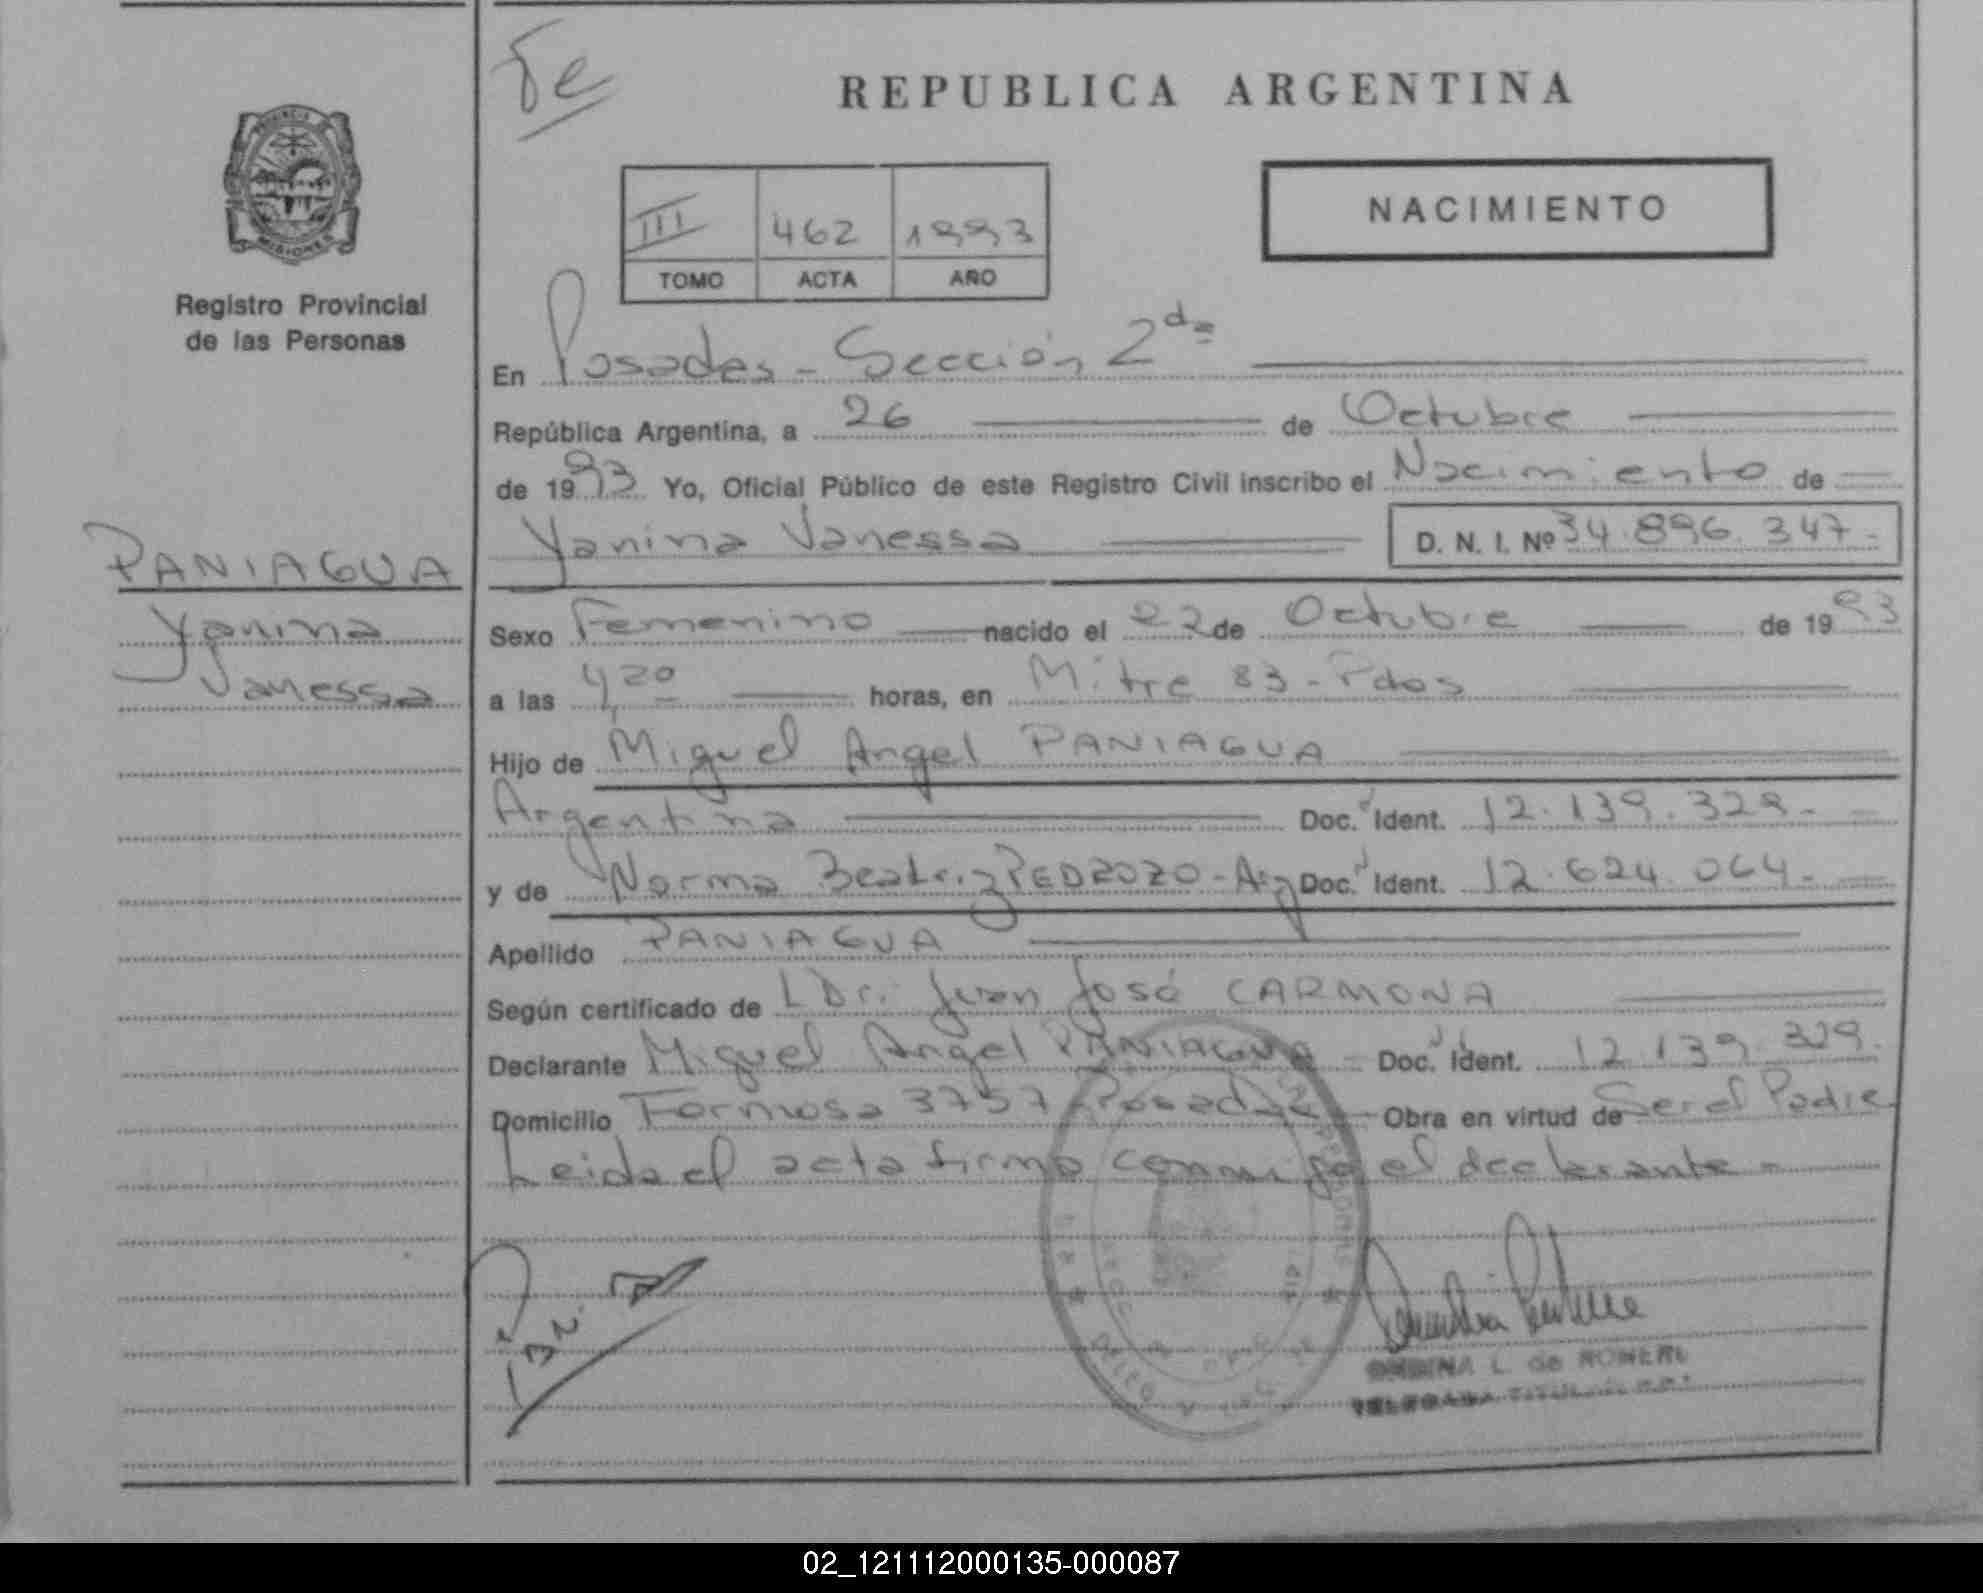 Te
REPUBLICA ARGENTINA
NACIMIENTO
III 462 1993
TOMO ACTA AÑO
PROVINCIA DE
MISIONES
Registro Provincial
de las Personas
En Posadas - Sección 2da
República Argentina, a 26 de Octubre
de 1993 Yo, Oficial Público de este Registro Civil inscribo el Nacimiento de
Yanina Vanessa D. N. I. Nº 34.896.347-
PANIAGUA
Yanina
Vanessa
Sexo Femenino nacido el 22 de Octubre de 1993
a las 4,20 horas, en Mitre 83 - Pdas
Hijo de Miguel Angel PANIAGUA
Argentina Doc. Ident. 12.139.329-
y de Norma Beatriz PEDROZO - Arg Doc. Ident. 12.624.064-
Apellido PANIAGUA
Según certificado de Dr. Juan José CARMONA
Declarante Miguel Angel PANIAGUA - Doc. Ident. 12.139.329.
Domicilio Formosa 3757 Posadas - Obra en virtud de Ser el Padre
Leida el acta firma conmigo el declarante -
L. de ROMERO
02_121112000135-000087